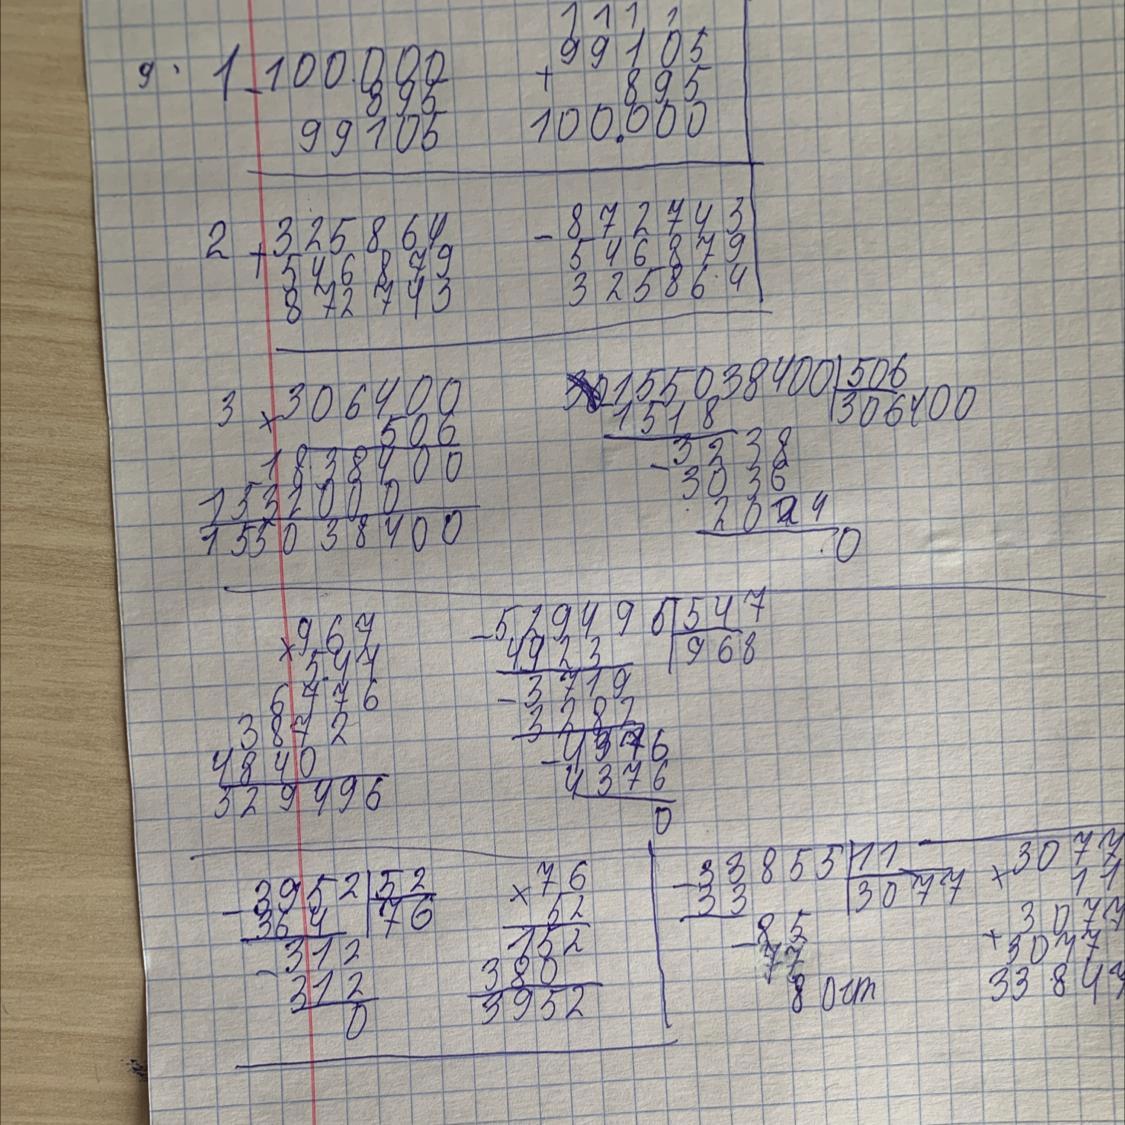 9. 1 - 100.000
895
99105
1 1 1 1
99105
+ 895
100.000
2 + 325864
546879
872743
- 872743
546879
325864
3 x 306400
506
1838400
1532000
155038400
155038400 | 506
1518 | 306400
- 3238
3036
2024
0
x 967
547
6776
3872
4840
529496
- 529496 | 547
4923 | 968
- 3719
3282
- 4376
4376
0
- 3952 | 52
364 | 76
- 312
312
0
x 76
52
152
380
3952
- 33855 | 11
33 | 3077
- 85
77
8 ост
x 3077
11
+ 3077
3077
33847